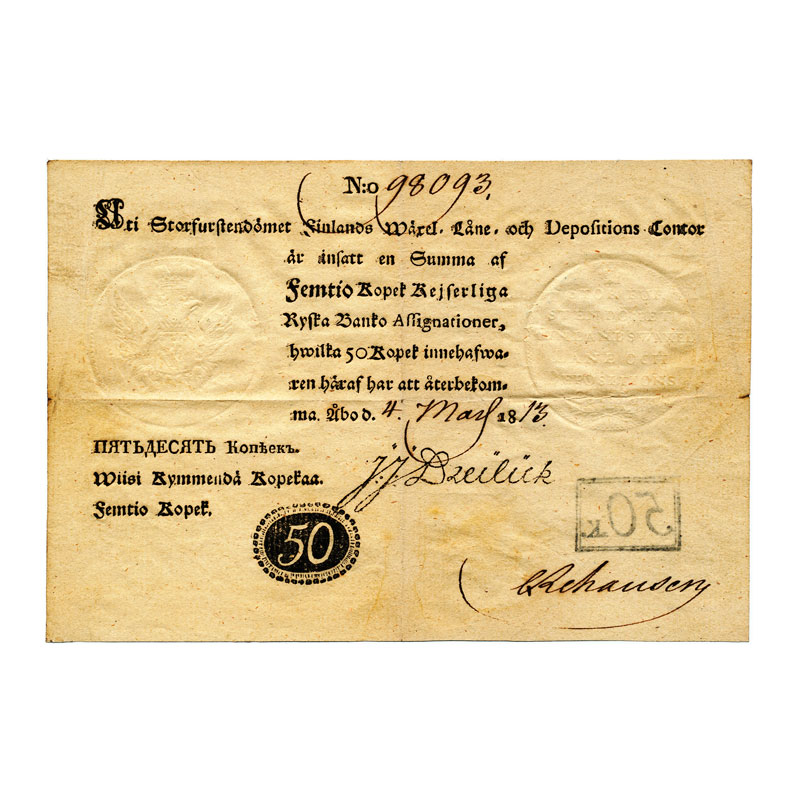 N:o 98093.
Uti Storfurstendömet Finlands Wäxel- Låne- och Depositions-Contor
är insatt en Summa af
Femtio Kopek Kejserliga
Ryska Banko Assignationer,
hwilka 50 Kopek innehafwa-
ren häraf har att återbekom-
ma. Åbo d. 4. Mars 1813.
ПЯТЬДЕСЯТЬ Копѣекъ.
Wiisi Kymmendä Kopekaa.
Femtio Kopek.
50
50 K.